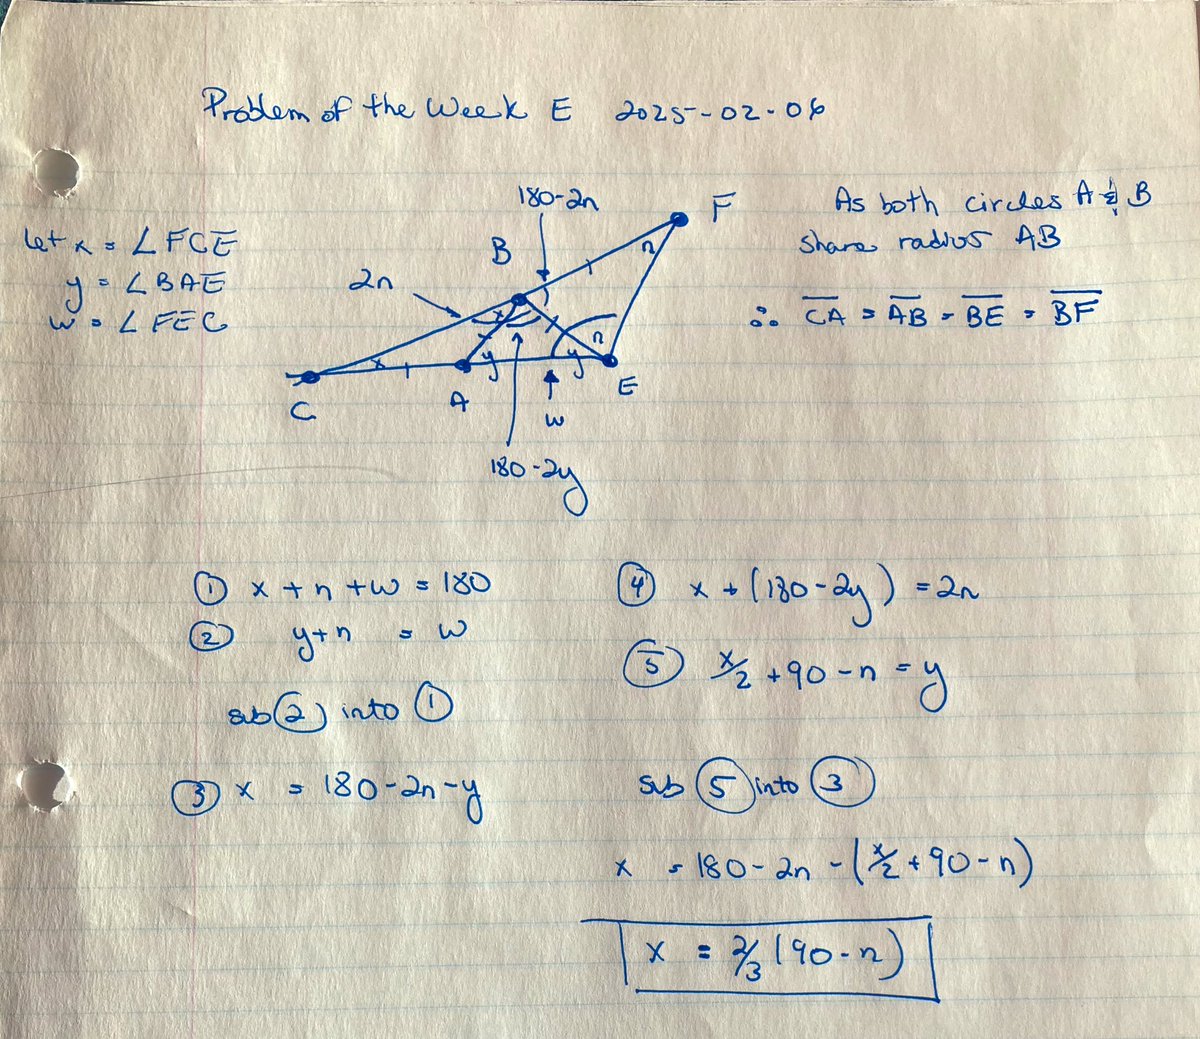 Problem of the Week E 2025-02-06
let x = ∠FCE
y = ∠BAE
w = ∠FEC
180-2n
F
B
n
2n
x
n
x
y
y
C
A
E
w
180-2y
As both circles A & B
share radius AB
∴ CA = AB = BE = BF
① x + n + w = 180
② y+n = w
sub ② into ①
③ x = 180-2n-y
④ x + (180-2y) = 2n
⑤ x/2 + 90 - n = y
sub ⑤ into ③
x = 180-2n-(x/2 + 90-n)
x = 2/3 (90-n)